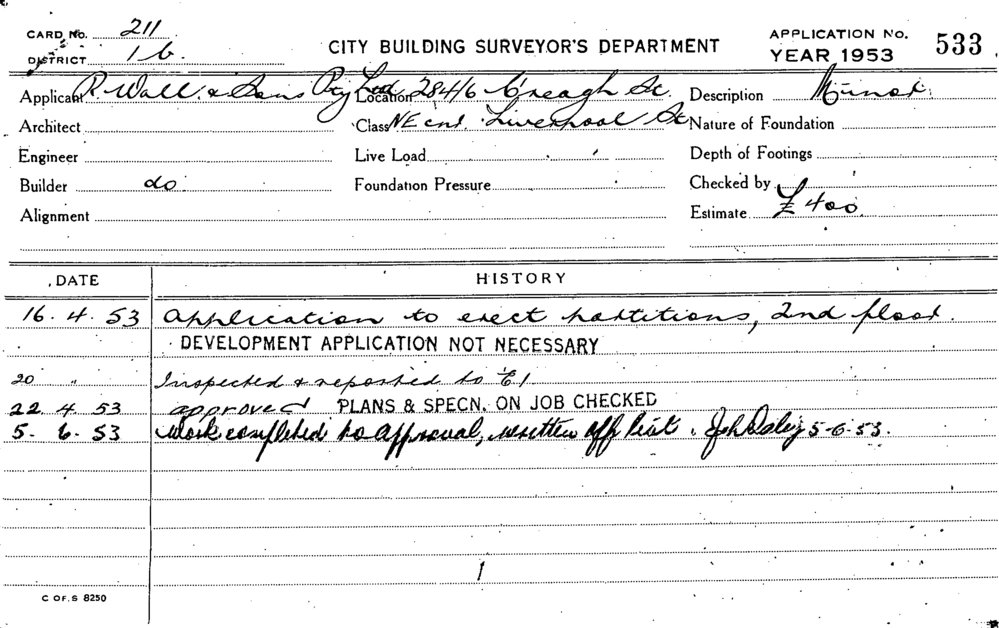 CARD No. 211
DISTRICT 1b.
CITY BUILDING SURVEYOR'S DEPARTMENT
APPLICATION No.
YEAR 1953
533
Applicant R. Wall & Sons Pty Ltd Location 284/6 C'reagh St. Description Minor.
Architect Class NE cnr. Liverpool St Nature of Foundation
Engineer Live Load Depth of Footings
Builder do Foundation Pressure Checked by
Alignment Estimate £400.
DATE HISTORY
16. 4. 53 Application to erect partitions, 2nd floor.
DEVELOPMENT APPLICATION NOT NECESSARY
20 " Inspected & reported to
22. 4. 53 approved PLANS & SPECN. ON JOB CHECKED
5. 6. 53 Work completed to approval, written off list. 5-6-53.
C OF.S 8250